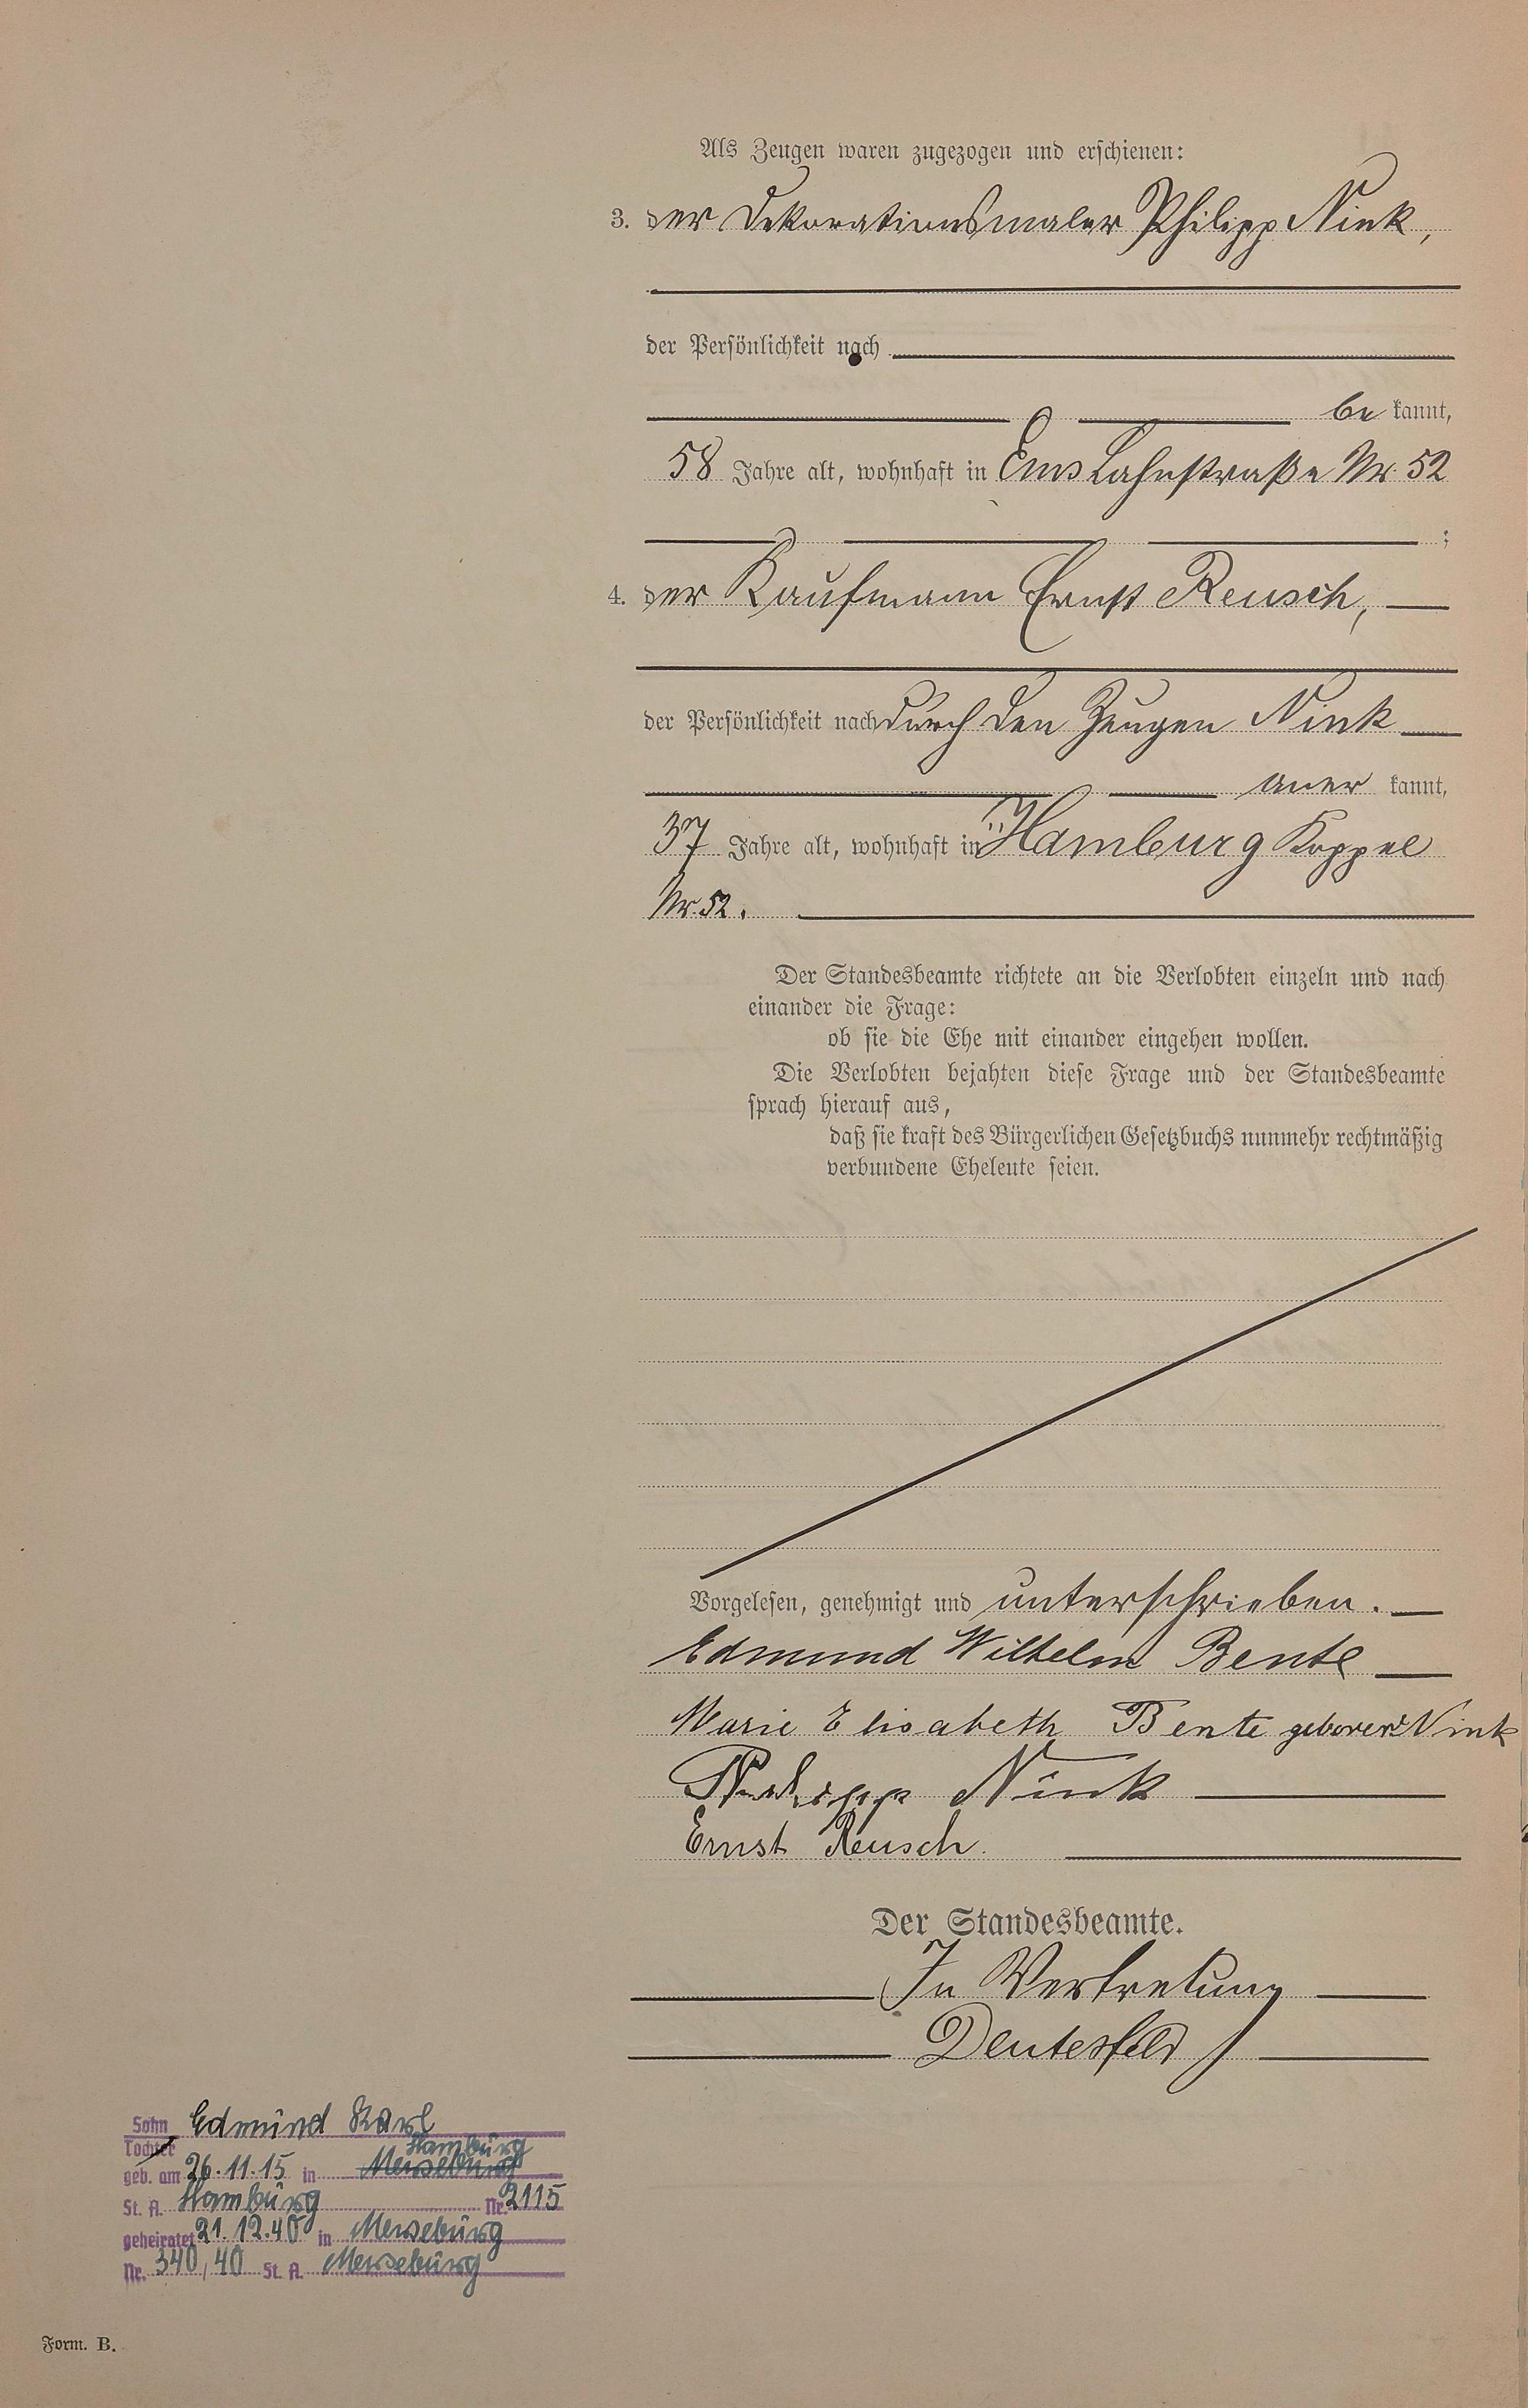 Als Zeugen waren zugezogen und erschienen:
3. der Dekorationsmaler Philipp Nink,
der Persönlichkeit nach
be kannt,
58 Jahre alt, wohnhaft in Ems Lahnstraße Nr. 52
;
4. der Kaufmann Ernst Reusch,
der Persönlichkeit nach durch den Zeugen Nink
aner kannt,
37 Jahre alt, wohnhaft in Hamburg Koppel
Nr. 52.
Der Standesbeamte richtete an die Verlobten einzeln und nach
einander die Frage:
ob sie die Ehe mit einander eingehen wollen.
Die Verlobten bejahten diese Frage und der Standesbeamte
sprach hierauf aus,
daß sie kraft des Bürgerlichen Gesetzbuchs nunmehr rechtmäßig
verbundene Eheleute seien.
Vorgelesen, genehmigt und unterschrieben.
Edmund Wilhelm Bente
Marie Elisabeth Bente geborene Nink
Philipp Nink
Ernst Reusch.
Der Standesbeamte.
In Vertretung
Deutesfeld
Sohn Edmund Karl
Tochter
Hamburg
geb. am 26.11.15 in Merseburg
St. A. Hamburg Nr. 2115
geheiratet 21.12.40 in Merseburg
Nr. 340/40 St. A. Merseburg
Form. B.